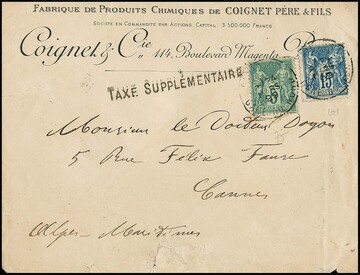 FABRIQUE DE PRODUITS CHIMIQUES DE COIGNET PÈRE & FILS
SOCIÉTÉ EN COMMANDITE PAR ACTIONS, CAPITAL : 3 500 000 FRANCS
Coignet & Cie 114, Boulevard Magenta
TAXE SUPPLÉMENTAIRE
15
Monsieur le Docteur
5 Rue Felix Faure
Cannes
Alpes-Maritimes